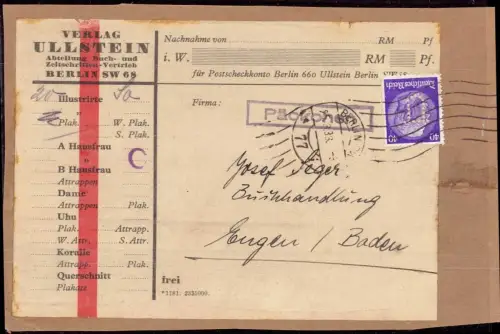 VERLAG
ULLSTEIN
Abteilung Buch- und
Zeitschriften-Vertrieb
BERLIN SW 68
Nachnahme von RM Pf
i. W. RM Pf.
für Postscheckkonto Berlin 660 Ullstein Berlin
Firma:
20 Illustrirte 50
"
Plak. W. Plak.
S. Plak.
A Hausfrau
"
B Hausfrau
Attrappen
Dame
Attrappen Plak.
Uhu
Plak. Attrapp.
W. Attr. S. Attr.
Koralle
Attrapp. Plak.
Querschnitt
Plakate
C
Päckchen
BERLIN
77
Deutsches Reich
40 40
Josef Jäger
Buchhandlung
Engen / Baden
frei